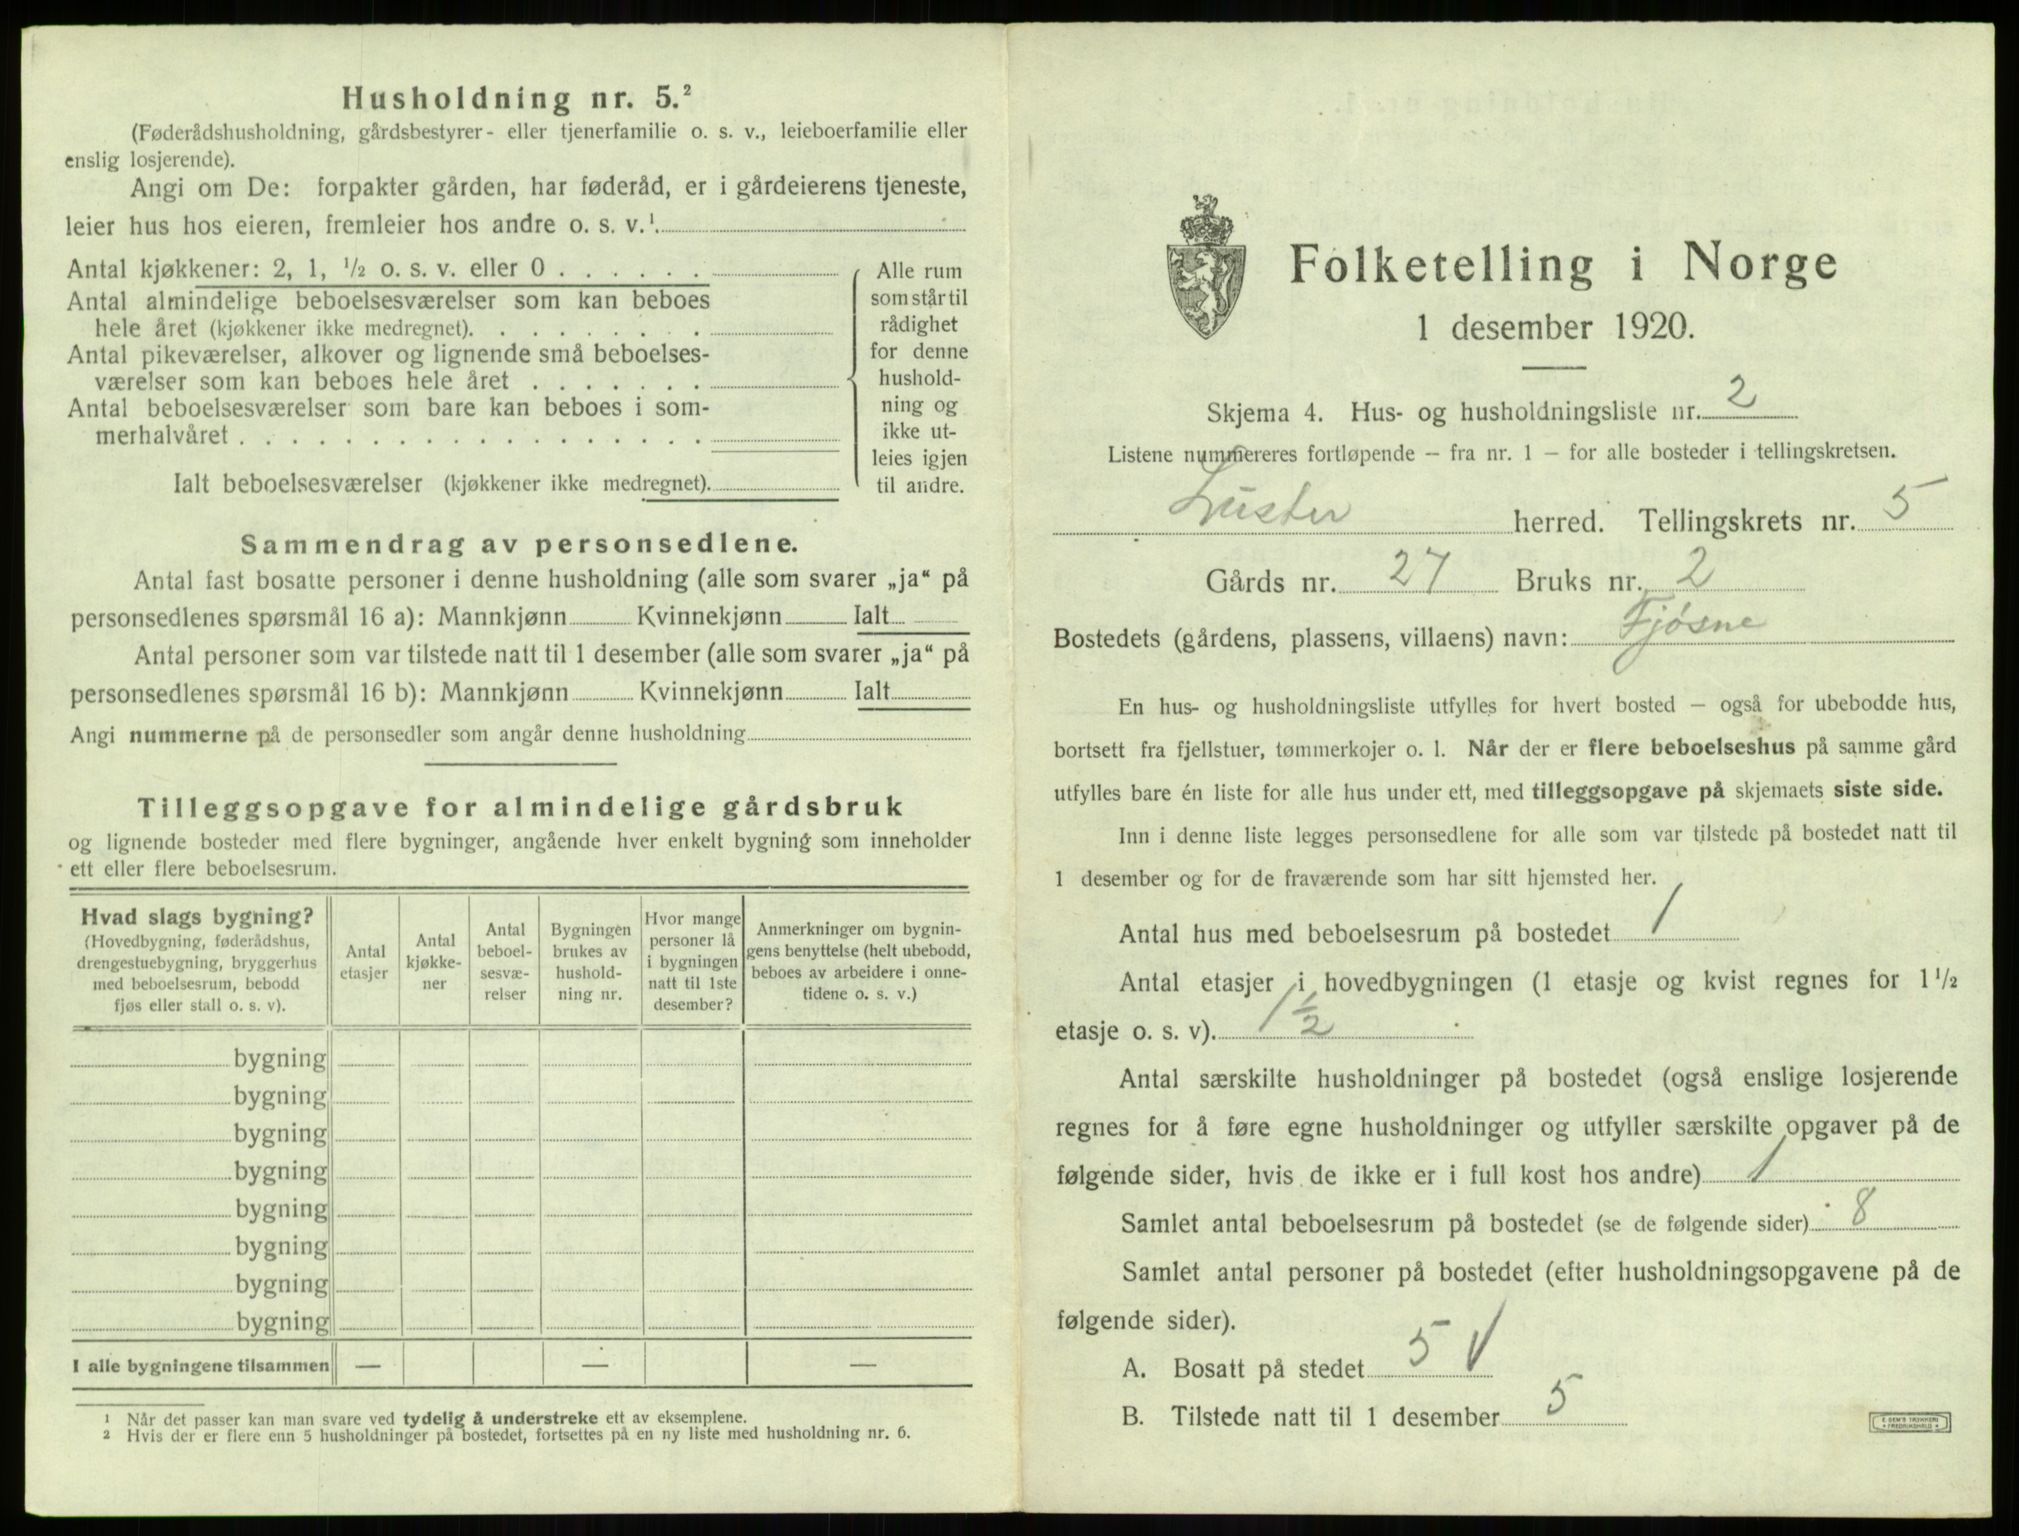 Husholdning nr. 5.²
(Føderådshusholdning, gårdsbestyrer- eller tjenerfamilie o. s. v., leieboerfamilie eller
enslig losjerende).
Angi om De: forpakter gården, har føderåd, er i gårdeierens tjeneste,
leier hus hos eieren, fremleier hos andre o. s. v.¹
Antal kjøkkener: 2, 1, ½ o. s. v. eller 0 . . . . . .
Antal almindelige beboelsesværelser som kan beboes
hele året (kjøkkener ikke medregnet). . . . . . . . .
Antal pikeværelser, alkover og lignende små beboelses-
værelser som kan beboes hele året . . . . . . .
Antal beboelsesværelser som bare kan beboes i som-
merhalvåret . . . . . . . . . . . . . . . . . .
Ialt beboelsesværelser (kjøkkener ikke medregnet).
Alle rum
som står til
rådighet
for denne
hushold-
ning og
ikke ut-
leies igjen
til andre.
Sammendrag av personsedlene.
Antal fast bosatte personer i denne husholdning (alle som svarer „ja“ på
personsedlenes spørsmål 16 a): Mannkjønn Kvinnekjønn Ialt
Antal personer som var tilstede natt til 1 desember (alle som svarer „ja“ på
personsedlenes spørsmål 16 b): Mannkjønn Kvinnekjønn Ialt
Angi nummerne på de personsedler som angår denne husholdning
Tilleggsopgave for almindelige gårdsbruk
og lignende bosteder med flere bygninger, angående hver enkelt bygning som inneholder
ett eller flere beboelsesrum.
Hvad slags bygning?
(Hovedbygning, føderådshus,
drengestuebygning, bryggerhus
med beboelsesrum, bebodd
fjøs eller stall o. s. v).
Antal
etasjer
Antal
kjøkke-
ner
Antal
beboel-
sesvæ-
relser
Bygningen
brukes av
hushold-
ning nr.
Hvor mange
personer lå
i bygningen
natt til 1ste
desember?
Anmerkninger om bygnin-
gens benyttelse (helt ubebodd,
beboes av arbeidere i onne-
tidene o. s. v.)
bygning
bygning
bygning
bygning
bygning
bygning
bygning
bygning
I alle bygningene tilsammen — — —
1 Når det passer kan man svare ved tydelig å understreke ett av eksemplene.
2 Hvis der er flere enn 5 husholdninger på bostedet, fortsettes på en ny liste med husholdning nr. 6.
Folketelling i Norge
1 desember 1920.
Skjema 4. Hus- og husholdningsliste nr. 2
Listene nummereres fortløpende – fra nr. 1 – for alle bosteder i tellingskretsen.
Luster herred. Tellingskrets nr. 5
Gårds nr. 27 Bruks nr. 2
Bostedets (gårdens, plassens, villaens) navn: Fjøsne
En hus- og husholdningsliste utfylles for hvert bosted – også for ubebodde hus,
bortsett fra fjellstuer, tømmerkojer o. l. Når der er flere beboelseshus på samme gård
utfylles bare én liste for alle hus under ett, med tilleggsopgave på skjemaets siste side.
Inn i denne liste legges personsedlene for alle som var tilstede på bostedet natt til
1 desember og for de fraværende som har sitt hjemsted her.
Antal hus med beboelsesrum på bostedet 1
Antal etasjer i hovedbygningen (1 etasje og kvist regnes for 1 ½
etasje o. s. v). 1 ½
Antal særskilte husholdninger på bostedet (også enslige losjerende
regnes for å føre egne husholdninger og utfyller særskilte opgaver på de
følgende sider, hvis de ikke er i full kost hos andre) 1
Samlet antal beboelsesrum på bostedet (se de følgende sider) 8
Samlet antal personer på bostedet (efter husholdningsopgavene på de
følgende sider).
A. Bosatt på stedet 5 √
B. Tilstede natt til 1 desember 5
E. SEM'S TRYKKERI
FREDRIKSHALD